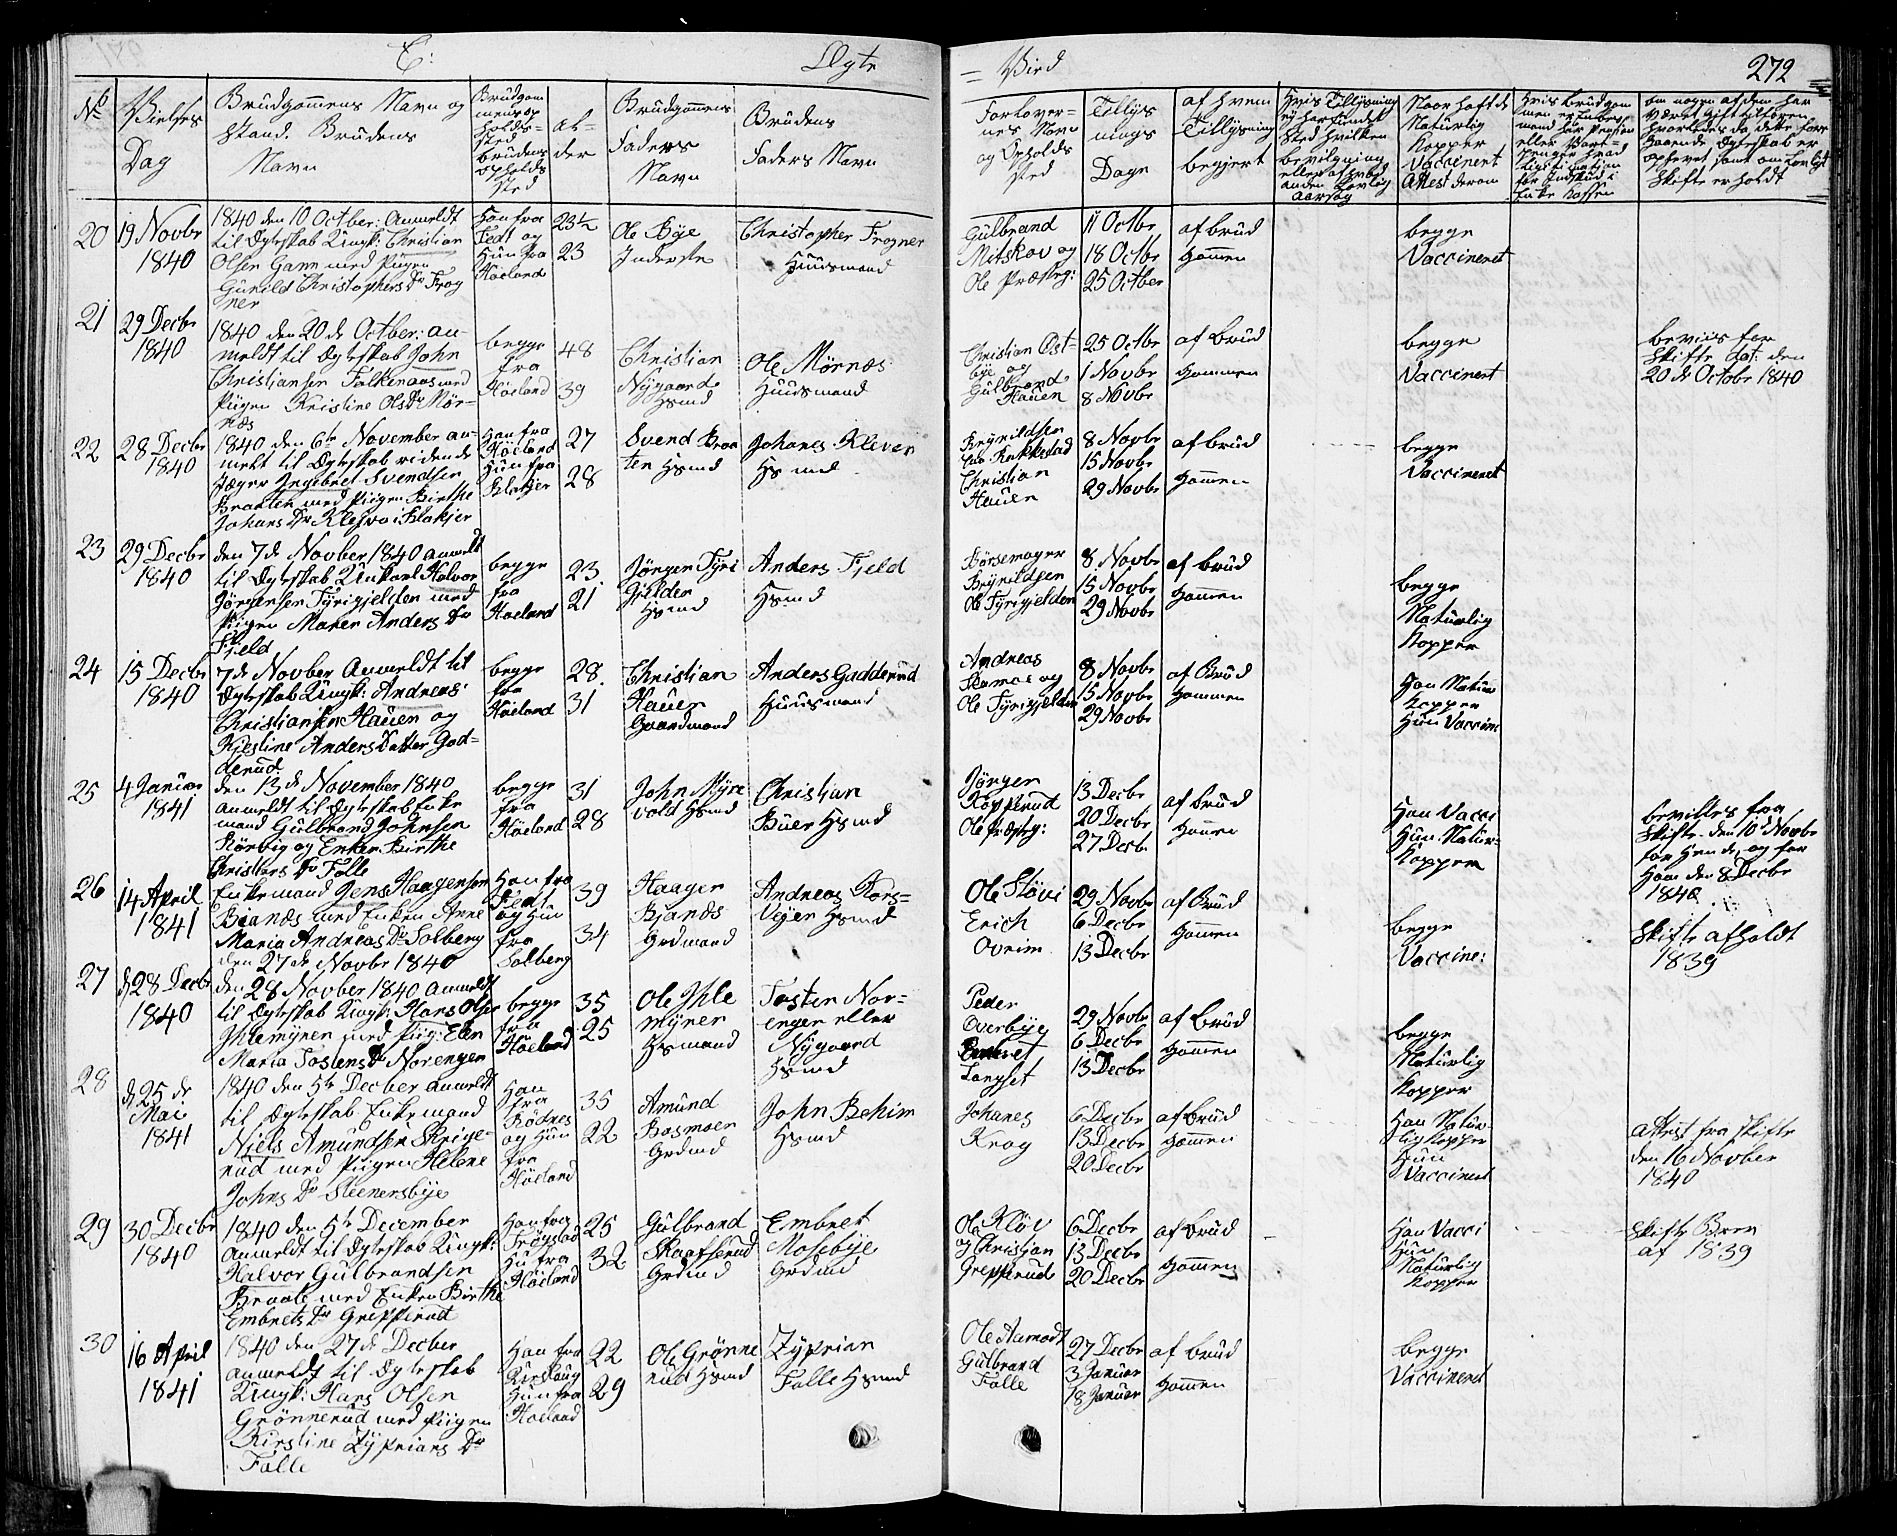 C: Ægte = Vied 272
No
Vielses
Dag
Brudgommens Navn og
Stand. Brudens
Navn
Brudgom
mens op
holds-
sted
brudens
opholds
sted
al-
der
Brudgommens
Faders
Navn
Brudens
Faders Navn
Forlover-
nes Navn
og Opholds
sted
Tillys
nings
Dage
af hvem
Tillysning
begjert
Hvis Tillysning
ej har fundet
Sted hvilken
bevilgning
eller
anden lovlig
aarsag
Naar hafte
Naturlig
Kopper
Vaccineret
Attest derom
Hvis brudgom
men er
mand har
eller
for Indskud i
Enke Kassen
om nogen af dem har
været gift tilforen
hvorledes da dette forr
gaaende Ægteskab er
ophevet samt om lovligt
Skifte er holdt
20
19 Novbr
1840
1840 den 10 Octber: Anmeldt
til Ægteskab Ungk: Christian
Olsen Gann med Pigen
Gunild Christophers Dr Frog
ner
Han fra
Fedt og
Hun fra
Høeland
23½
23
Ole Bye
Inderste
Christopher Frogner
Huusmand
Gulbrand
Mitskov og
Ole Præsteg:
11 Octbr
18 Octbr
25 Octber
af brud
gommen
begge
Vaccineret
21
29 Decbr
1840
1840 den 20 de Octber: an-
meldt til Ægteskab John
Christiansen Falkenaas med
Pigen Kristine Ols Dr Mør-
næs
begge
fra
Høeland
48
39
Christian
Nygaard
Hsmd
Ole Mørnæs
Huusmand
Christian Ost-
bye og
Gulbrand
Hauen
25 Octbr
1 Novbr
8 Novbr
af brud
gommen
begge
Vaccineret
beviis for
Skifte dat: den
20 de Octobr 1840
22
28 Decbr
1840
1840 den 6te November an-
meldt til Ægteskab ridende
Jæger Ingebret Svendsen
Braaten med Pigen Birthe
Johans Dr Kleiva i Blakjer
Han fra
Høeland
Hun fra
Blakjer
27
28
Svend Braa
ten Hsmd
Johanes Kleven
Hsmd
Brynildsen
Christian
Hauen
8 Novbr
15 Novbr
29 Novbr
af brud
gommen
begge
Vaccineret
23
29 Decbr
1840
den 7de Novber 1840 anmeldt
til Ægteskab Unkarl Halvor
Jørgensen Tyrigjelden med
Pigen Maren Anders Dr
Fjeld
begge
fra
Høeland
23
21
Jørgen Tyri
Gjelden
Hsmd
Anders Fjeld
Hsmd
Børsemager
Brynildsen
Ole Tyrigjelden
8 Novbr
15 Novbr
29 Novbr
af brud
gommen
begge
Naturlig
Kopper
24
15 Decbr
1840
7de Novber Anmeldt til
Ægteskab Ungk: Andreas
Christiansen Hauen og
Kjestine Anders Datter Gad-
derud
begge
fra
Høeland
28
31
Christian
Hauen
Gaardmand
Anders Gadderud
Huusmand
Andreas
og
Ole Tyrigjelden
8 Novbr
15 Novbr
29 Novbr
af Brud
gommen
Han Natur
Kopper
Hun Vaccine
25
4 Januar
1841
den 13de November 1840
anmeldt til Ægteskab Enke
mand Gulbrand Johnsen
Kørbig og Enken Birthe
Christians Dr Folle
begge
fra
Høeland
31
28
John Myre
vold Hsmd
Christian
Buer Hsmd
Jørgen
Kopperud
Ole Præsteg:
13 Decbr
20 Decbr
27 Decbr
af brud
gommen
Han Vacci
Hun Natur-
Kopper
bevilles fra
Skifte den 10 Novbr
for Hende, og for
Ham den 8 Decbr
1840
26
14 April
1841
Enkemand Jens Haagensen
Bjanæs med Enken Anne
Maria Andreas Dr Solberg
den 27de Novbr 1840
Han fra
Fedt
og Hun
fra
Solberg
39
34
Haagen
Bjanæs
Grdmand
Andreas Kors-
Vejen Hsmd
Ole Støvi
Erich
Overim
29 Novbr
6 Decbr
13 Decbr
af Brud
gommen
begge
Vaccine:
Skifte afholdt
1839
27
d 28 Decbr
1840
den 28 Novber 1840 Anmeldt
til Ægteskab Ungk: Hans Olsen
Ihlemyren med Pig: Elen
Maria Tostens Dr Norengen
begge
fra
Høeland
35
25
Ole Ihle
myren
Hsmand
Tosten Nor-
engen eller
Nygaard
Hsmd
Peder
Overbye
Embret
Langset
29 Novbr
6 Decbr
13 Decbr
af Brud
gommen
begge
Naturlig
Kopper
28
d 25 de
Mai
1841
1840 den 5te Decber anmeldt
til Ægteskab Enkemand
Niels Amundsen Skrige-
rud med Pigen Helene
Johns Dr Steenersbye
Han
fra
Rødnes
og Hun
fra
Høeland
35
22
Amund
Basmoen
Grdmd
John Behim
Hsmd
Johanes
Krog
6 Decbr
13 Decbr
20 Decbr
af brud
gommen
Han Natur-
lig Kopper
Hun
Vaccineret
Attest fra Skifte
den 16 Novber
1840
29
30 Decbr
1840
1840 den 5te December
Anmeldt til Ægteskab Ungk:
Halvor Gulbrandsen
Braate med Enken Birthe
Embrets Dr Grepperud
Han fra
Trøgstad
Hu fra
Høeland
25
32
Gulbrand
Skaafserud
Grdmd
Embret
Mosebye
Grdmd
Ole Kløv
og Christian
Grepperud
6 Decbr
13 Decbr
20 Decbr
af Brud
gommen
Han Vacci
Hun
Naturlig
Kopper
Skifte Brev
af 1839
30
16 April
1841
1840 den 27de Decber
anmeldt til Ægteskab
Ungk: Hans Olsen
Grønnerud med Pigen
Kirstine Zyprians Dr
Folle
Han fra
Urskaug
Hun fra
Høeland
22
29
Ole Grønne
rud Hsmd
Zyprian
Folle Hsmd
Ole Aamodt
Gulbrand
Folle
27 Decbr
3 Januar
18 Januar
af brud
gommen
begge
Vaccineret